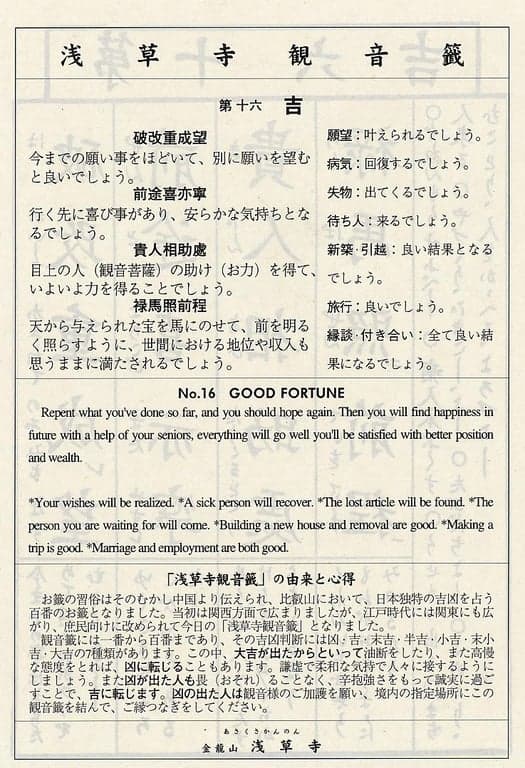 浅草寺観音籤
第十六 吉
破改重成望
今までの願い事をほどいて、別に願いを望む
と良いでしょう。
前途喜亦寧
行く先に喜び事があり、安らかな気持ちとな
るでしょう。
貴人相助處
目上の人（観音菩薩）の助け（お力）を得て、
いよいよ力を得ることでしょう。
禄馬照前程
天から与えられた宝を馬にのせて、前を明る
く照らすように、世間における地位や収入も
思うままに満たされるでしょう。
願望：叶えられるでしょう。
病気：回復するでしょう。
失物：出てくるでしょう。
待ち人：来るでしょう。
新築・引越：良い結果となる
でしょう。
旅行：良いでしょう。
縁談・付き合い：全て良い結
果になるでしょう。
No.16 GOOD FORTUNE
Repent what you've done so far, and you should hope again. Then you will find happiness in
future with a help of your seniors, everything will go well you'll be satisfied with better position
and wealth.
*Your wishes will be realized. *A sick person will recover. *The lost article will be found. *The
person you are waiting for will come. *Building a new house and removal are good. *Making a
trip is good. *Marriage and employment are both good.
「浅草寺観音籤」の由来と心得
お籤の習俗はそのむかし中国より伝えられ、比叡山において、日本独特の吉凶を占う
百番のお籤となりました。当初は関西方面で広まりましたが、江戸時代には関東にも広
がり、庶民向けに改められて今日の「浅草寺観音籤」となりました。
観音籤には一番から百番まであり、その吉凶判断には凶・吉・末吉・半吉・小吉・末小
吉・大吉の7種類があります。この中、大吉が出たからといって油断をしたり、また高慢
な態度をとれば、凶に転じることもあります。謙虚で柔和な気持で人々に接するように
しましょう。また凶が出た人も畏（おそれ）ることなく、辛抱強さをもって誠実に過ご
すことで、吉に転じます。凶の出た人は観音様のご加護を願い、境内の指定場所にこの
観音籤を結んで、ご縁つなぎをしてください。
あさくさかんのん
金龍山 浅草寺